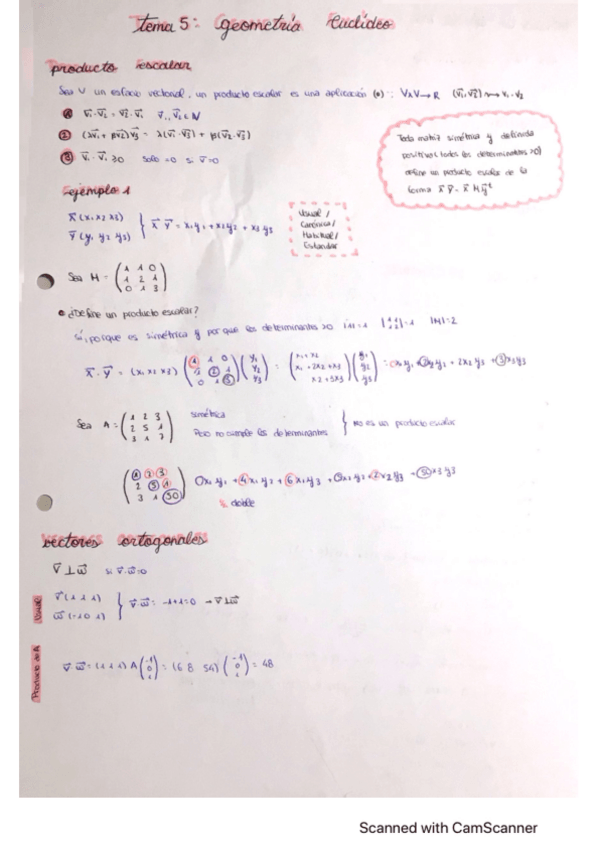 tema 5: Geometría Euclídeo
producto escalar
Sea V un espacio vectorial, un producto escalar es una aplicación (•): VxV→R (v⃗1,v⃗2)⇝v1·v2
① v⃗1·v⃗2 = v⃗2·v⃗1 v⃗1,v⃗2∈V
② (λv⃗1 + βv⃗2)v⃗3 = λ(v⃗1·v⃗3) + β(v⃗2·v⃗3)
③ v⃗1·v⃗1 ≥0 solo =0 si v⃗=0
Toda matriz simétrica y definida
positiva (todos los determinantes >0)
define un producto escalar de la
forma x⃗ y⃗ = x⃗ M y⃗ᵗ
Ejemplo 1
x⃗ (x1 x2 x3)
y⃗ (y1 y2 y3)
} x⃗ y⃗ = x1y1 + x2y2 + x3y3
Usual /
Canónica /
Habitual /
Estandar
Sea M = (1 1 0
1 2 1
0 1 3)
¿Define un producto escalar?
Sí, porque es simétrica y porque los determinantes >0 |1|=1 |1 1 1 2|=1 |M|=2
x⃗ · y⃗ = (x1 x2 x3) (1 1 0 1 2 1 0 1 3) (y1 y2 y3) = (x1+x2 x1+2x2+x3 x2+3x3) (y1 y2 y3) =
Sea A = (1 2 3
2 5 1
3 1 7)
simétrica
Pero no cumple los determinantes
} No es un producto escalar
(1 2 3
2 5 1
3 1 50)
doble
vectores ortogonales
v⃗ ⊥ w⃗ si v⃗·w⃗=0
Usual
v⃗ (1 1 1)
w⃗ (-1 0 1)
} v⃗·w⃗ = -1+1=0 → v⃗⊥w⃗
Producto de A
v⃗ w⃗ = (1 1 1) A (-1 0 1) = (6 8 54) (-1 0 1) = 48
Scanned with CamScanner